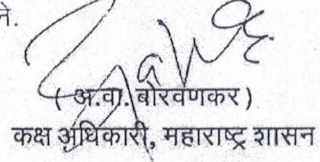 ने.
( अ.वा. बोरवणकर )
कक्ष अधिकारी, महाराष्ट्र शासन